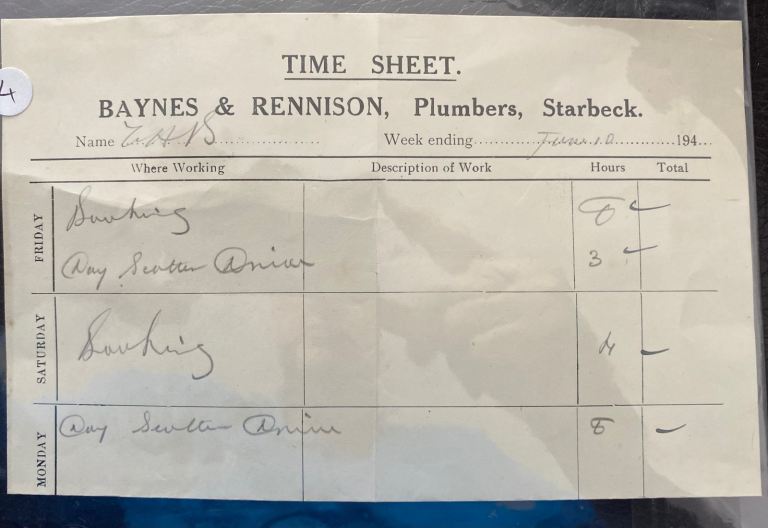 4
TIME SHEET.
BAYNES & RENNISON, Plumbers, Starbeck.
Name Week ending June 10 194
Where Working Description of Work Hours Total
FRIDAY
8
Day Drive 3
SATURDAY
4
MONDAY
Day Drive 8